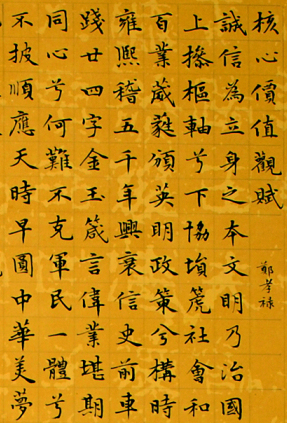 核心價值觀賦
鄭孝禄
誠信為立身之本文明乃治國
上操樞軸兮下協塤篪社會和
百業葳蕤頌英明政策兮構時
雍熙稽五千年興衰信史前車
踐廿四字金玉箴言偉業堪期
同心兮何難不克軍民一體兮
不披順應天時早圓中華美夢